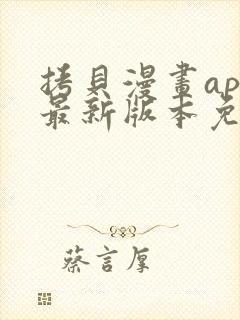 拷貝漫畫ap
最新版本免
蔡言厚